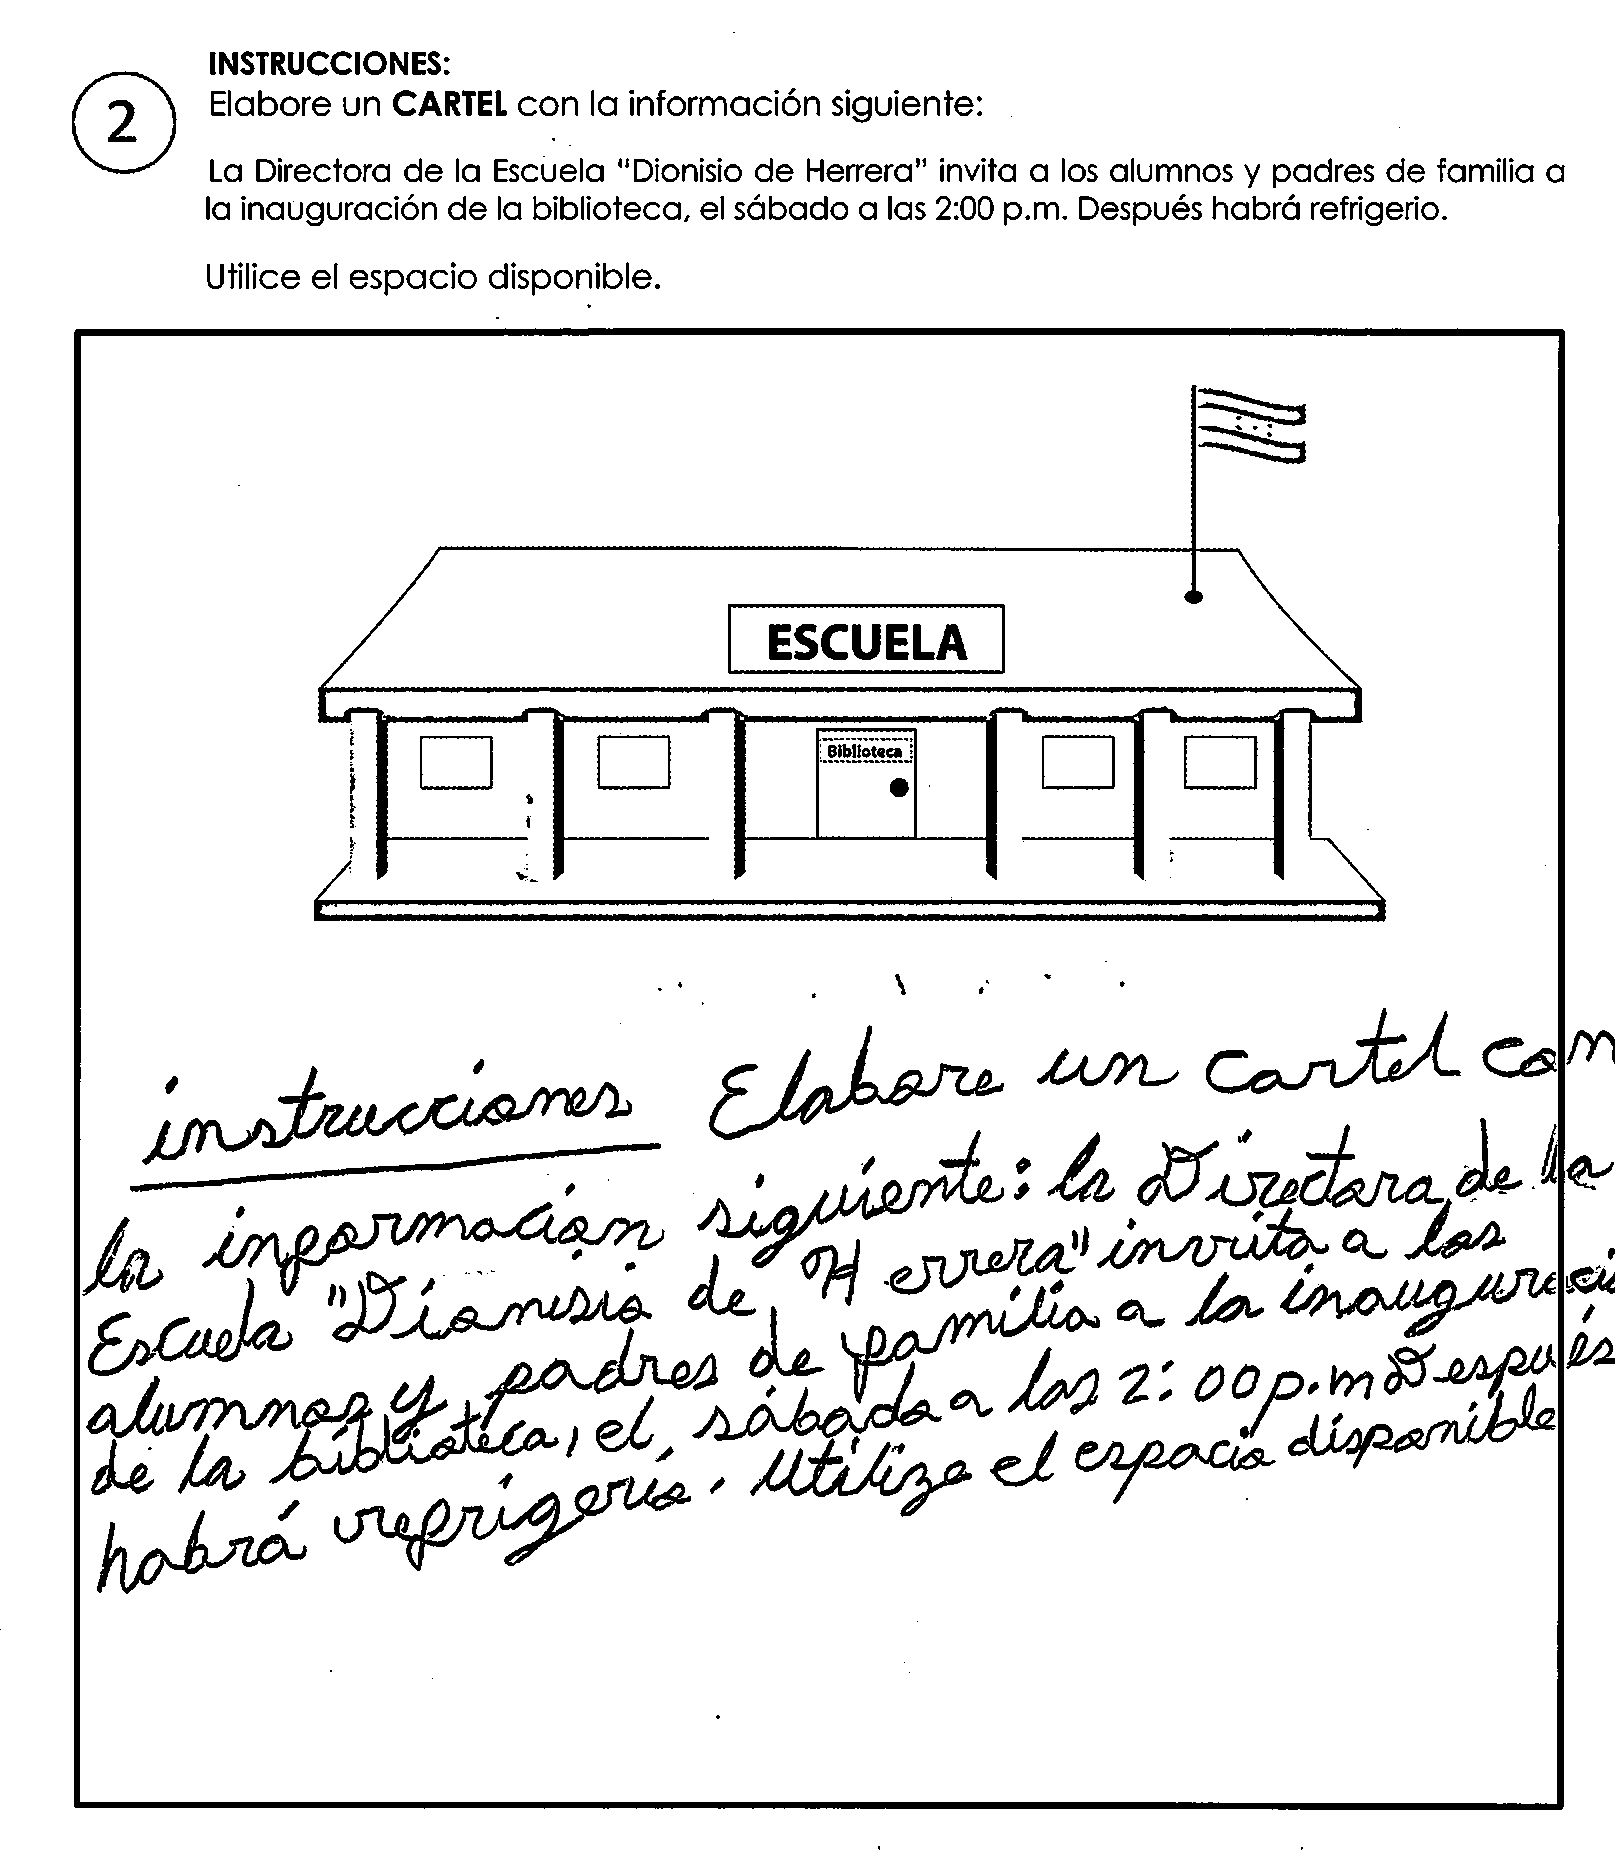 2
INSTRUCCIONES:
Elabore un CARTEL con la información siguiente:
La Directora de la Escuela "Dionisio de Herrera" invita a los alumnos y padres de familia a
la inauguración de la biblioteca, el sábado a las 2:00 p.m. Después habrá refrigerio.
Utilice el espacio disponible.
ESCUELA
Biblioteca
instrucciones Elabore un cartel con
la informacion siguiente: la Directora de la
Escuela "Dionisio de Herrera" invita a los
alumnos y padres de familia a la inauguraci
de la biblioteca, el sábado a las 2:00 p.m Después
habrá refrigerio. Utilize el espacio disponible